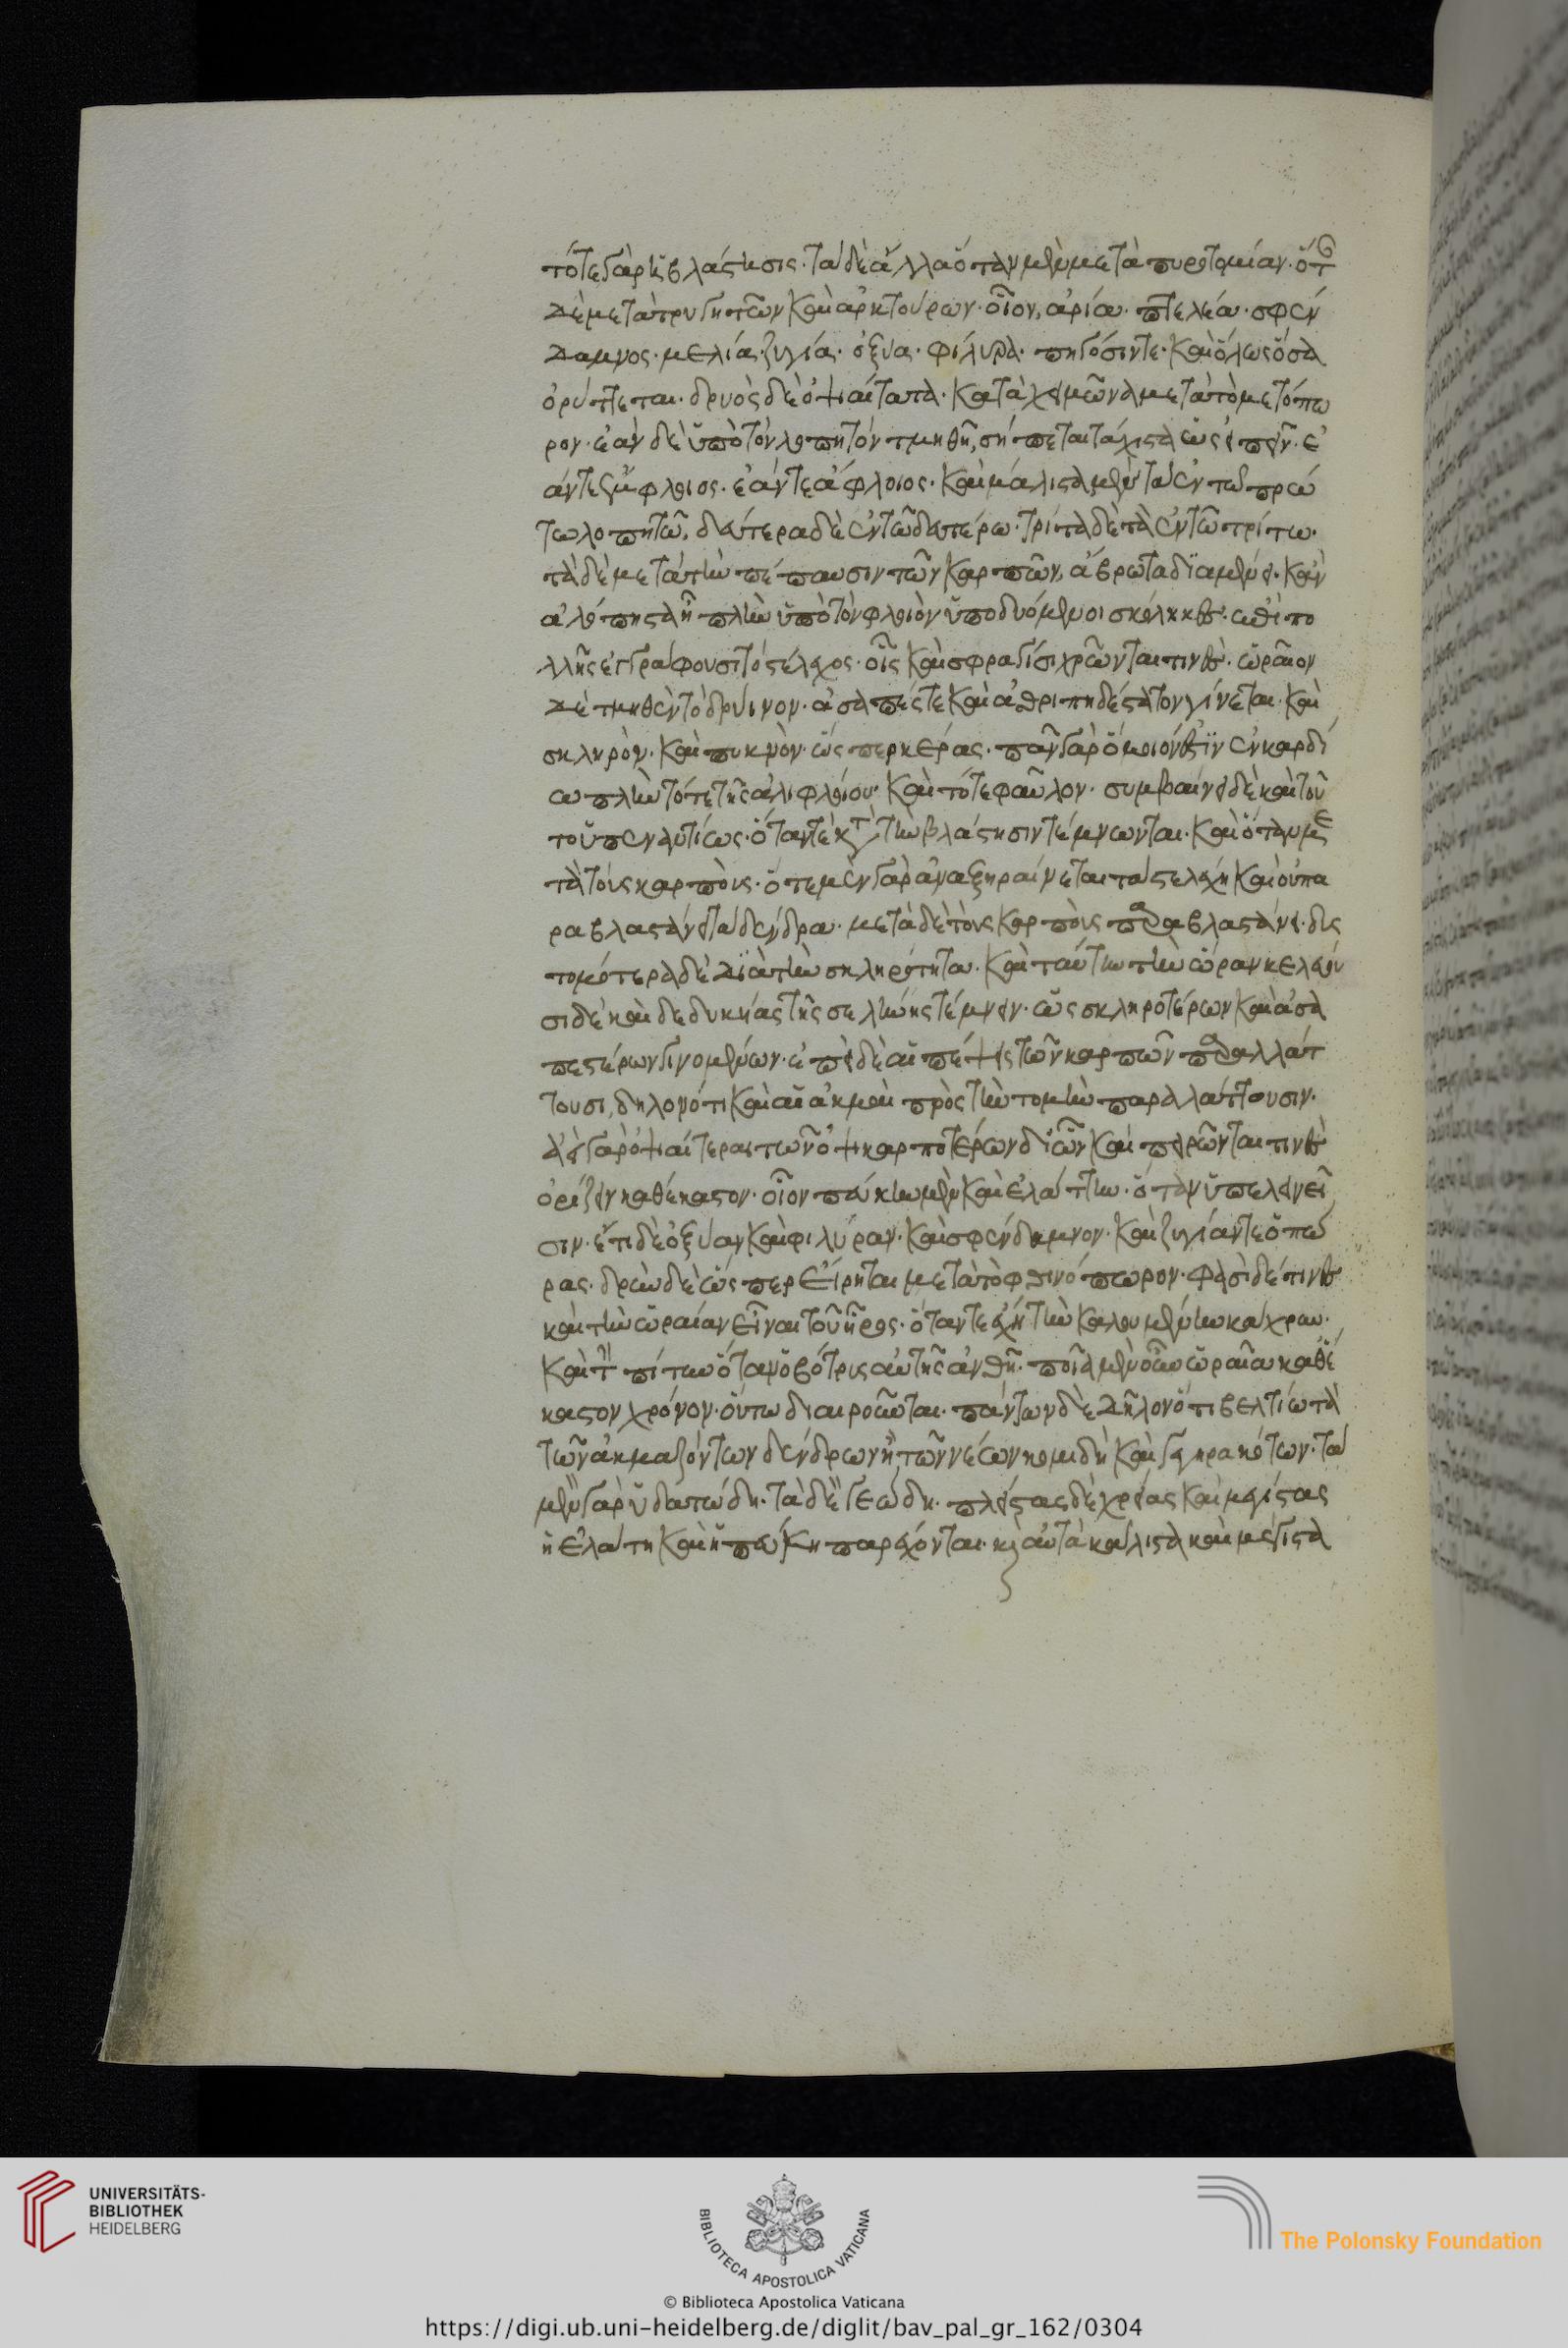 τότε γὰρ ἡ βλάστησις. τὰ δὲ ἄλλα ὅταν μὲν μετὰ πυροτομίαν. ὅτε
δὲ μετὰ τρυγητῶν καὶ ἀρκτούρων. οἷον, ἀρία. πτελέα. σφέν
δαμνος. μελία. ζυγία. ὀξύα. φίλυρα. πηγόσιντε. καὶ ὅλως ὅσα
ὀρύττεται. δρυὸς δὲ ὀψιαίτατα. κατὰ χειμῶνα μετὰ τὸ μετόπω
ρον. ἐὰν δὲ ὑπὸ τὸν λοπητόν τμηθῇ, σήπεται τάχιστα ὡς εἰπεῖν. ἐ
άντε ἔμφλοιος. ἐάντε ἄφλοιος. καὶ μάλιστα μὲν τὰ ἐν τῶ πρώ
τω λοπητῶ, δεύτερα δὲ ἐν τῶ δευτέρω. τρίτα δὲ τὰ ἐν τῶ τρίτω.
τὰ δὲ μετὰ τὴν πέπαυσιν τῶν καρπῶν, ἄβρωτα διαμένει. κἂν
ἀλόπηστα ἦ πλὴν ὑπὸ τὸν φλοιὸν ὑποδυόμενοι σκώληκες. ἐπιπο
λῆς ἐγγράφουσι τὸ στέλεχος. οἷς καὶ σφραγίσι χρῶνται τινὲς. ὡραῖον
δὲ τμηθὲν τὸ δρύινον. ἀσαπές τε καὶ ἀθριπηδέστατον γίνεται. καὶ
σκληρὸν. καὶ πυκνὸν. ὥσπερ κέρας. πᾶν γὰρ ὅμοιόν ἐστιν ἐν καρδί
ω πλὴν τότε τῆς ἁλιφλοίου. καὶ τότε φαῦλον. συμβαίνει δὲ καὶ τοῦ
το ὑπεναντίως. ὅταν τε κατὰ τὴν βλάστησιν τέμνωνται. καὶ ὅταν με
τὰ τοὺς καρποὺς. ὅτε μὲν γὰρ ἀναξηραίνεται τὰ στελέχη καὶ οὐ πα
ραβλαστάνει τὰ δένδρα. μετὰ δὲ τοὺς καρποὺς παραβλαστάνει. δυς
τομότερα δὲ διὰ τὴν σκληρότητα. καὶ ταύτην τὴν ὥραν κελεύου
σι δὲ καὶ δεδυκυίας τῆς σελήνης τέμνειν. ὡς σκληροτέρων καὶ ἀσα
πεστέρων γινομένων. ἐπεὶ δὲ αἱ πέψεις τῶν καρπῶν παραλλάτ
τουσι, δηλονότι καὶ αἱ ἀκμαὶ πρὸς τὴν τομὴν παραλάττουσιν.
ἀεὶ γὰρ ὀψιαίτεραι τῶν ὀψικαρποτέρων δι ὧν καὶ πειρῶνται τινὲς
ὁρίζειν καθέκαστον. οἷον πεύκην μὲν καὶ ἐλάτην. ὅταν ὑπελινεῖ
σιν. ἔτι δὲ ὀξύαν καὶ φιλύραν. καὶ σφένδαμνον. καὶ ζυγίαν τε ὀπώ
ρας. δρῦν δὲ ὥσπερ εἴρηται μετὰ τὸ φθινόπωρον. φασὶ δέ τινες
καὶ τὴν ὡραίαν εἶναι τοῦ ἦρος. ὅταν τε ἔχῃ τὴν καλουμένην κάχρυν.
καὶ τὴν πίτυν ὅταν ὁ βότρυς αὐτῆς ἀνθῇ. ποῖα μὲν οὖν ὡραῖα καθέ
καστον χρόνον. οὕτω διαιροῦνται. πάντων δὲ δῆλον ὅτι βελτίω τὰ
τῶν ἀκμαζόντων δένδρων ἢ τῶν νέων κομιδῆ καὶ γεγηρακότων. τὰ
μὲν γὰρ ὑδατώδη. τὰ δὲ γεώδη. πλείστας δὲ χρείας καὶ μεγίστας
ἡ ἐλάτη καὶ ἡ πεύκη παρέχονται. καὶ αὐτὰ κάλιστα καὶ μέγιστα
UNIVERSITÄTS-
BIBLIOTHEK
HEIDELBERG
BIBLIOTECA APOSTOLICA VATICANA
The Polonsky Foundation
© Biblioteca Apostolica Vaticana
https://digi.ub.uni-heidelberg.de/diglit/bav_pal_gr_162/0304